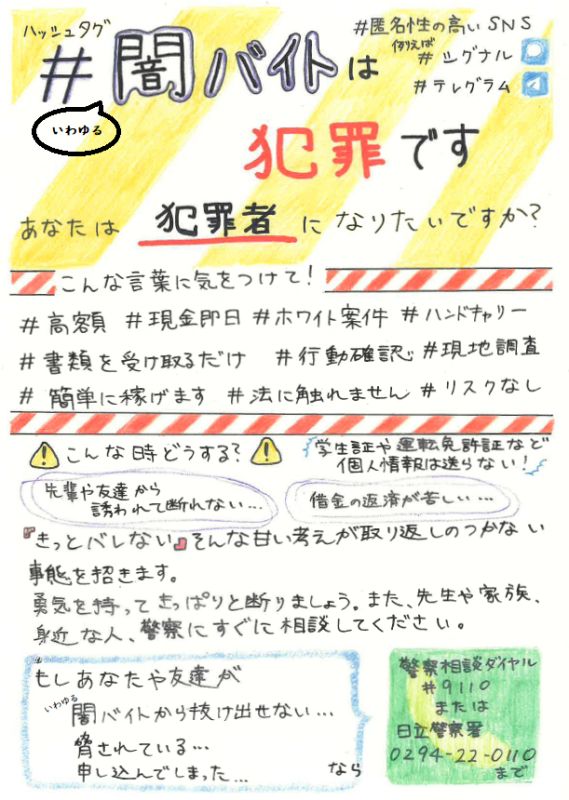 ハッシュタグ
#闇バイトは
いわゆる
#匿名性の高いSNS
例えば
#シグナル
#テレグラム
犯罪です
あなたは 犯罪者 になりたいですか?
こんな言葉に気をつけて!
#高額 #現金即日 #ホワイト案件 #ハンドキャリー
#書類を受け取るだけ #行動確認 #現地調査
#簡単に稼げます #法に触れません #リスクなし
こんな時どうする?
学生証や運転免許証など
個人情報は送らない!
先輩や友達から
誘われて断れない…
借金の返済が苦しい…
『きっとバレない』そんな甘い考えが取り返しのつかない
事態を招きます。
勇気を持ってきっぱりと断りましょう。また、先生や家族、
身近な人、警察にすぐに相談してください。
もしあなたや友達が
いわゆる
闇バイトから抜け出せない…
脅されている…
申し込んでしまった… なら
警察相談ダイヤル
#9110
または
日立警察署
0294-22-0110
まで